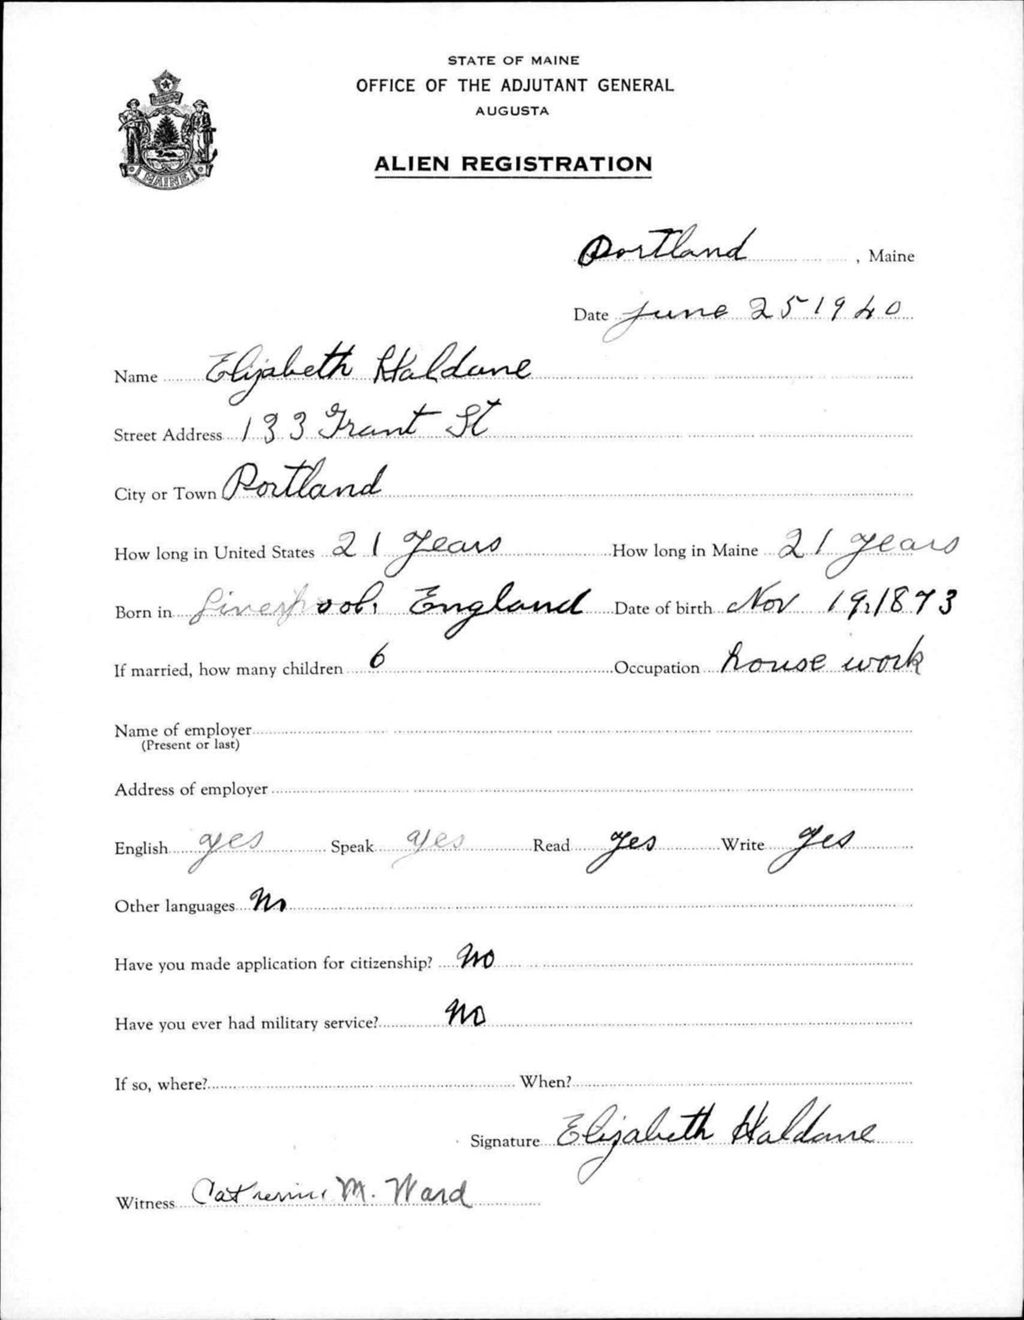 STATE OF MAINE
OFFICE OF THE ADJUTANT GENERAL
AUGUSTA
ALIEN REGISTRATION
MAINE
Portland, Maine
Date June 25 1940
Name Elizabeth Haldane
Street Address 133 Grant St
City or Town Portland
How long in United States 21 years How long in Maine 21 years
Born in Liverpool, England Date of birth Nov 19, 1873
If married, how many children 6 Occupation house work
Name of employer
(Present or last)
Address of employer
English yes Speak yes Read yes Write yes
Other languages No
Have you made application for citizenship? No
Have you ever had military service? No
If so, where? When?
Signature Elizabeth Haldane
Witness Catherine M. Ward